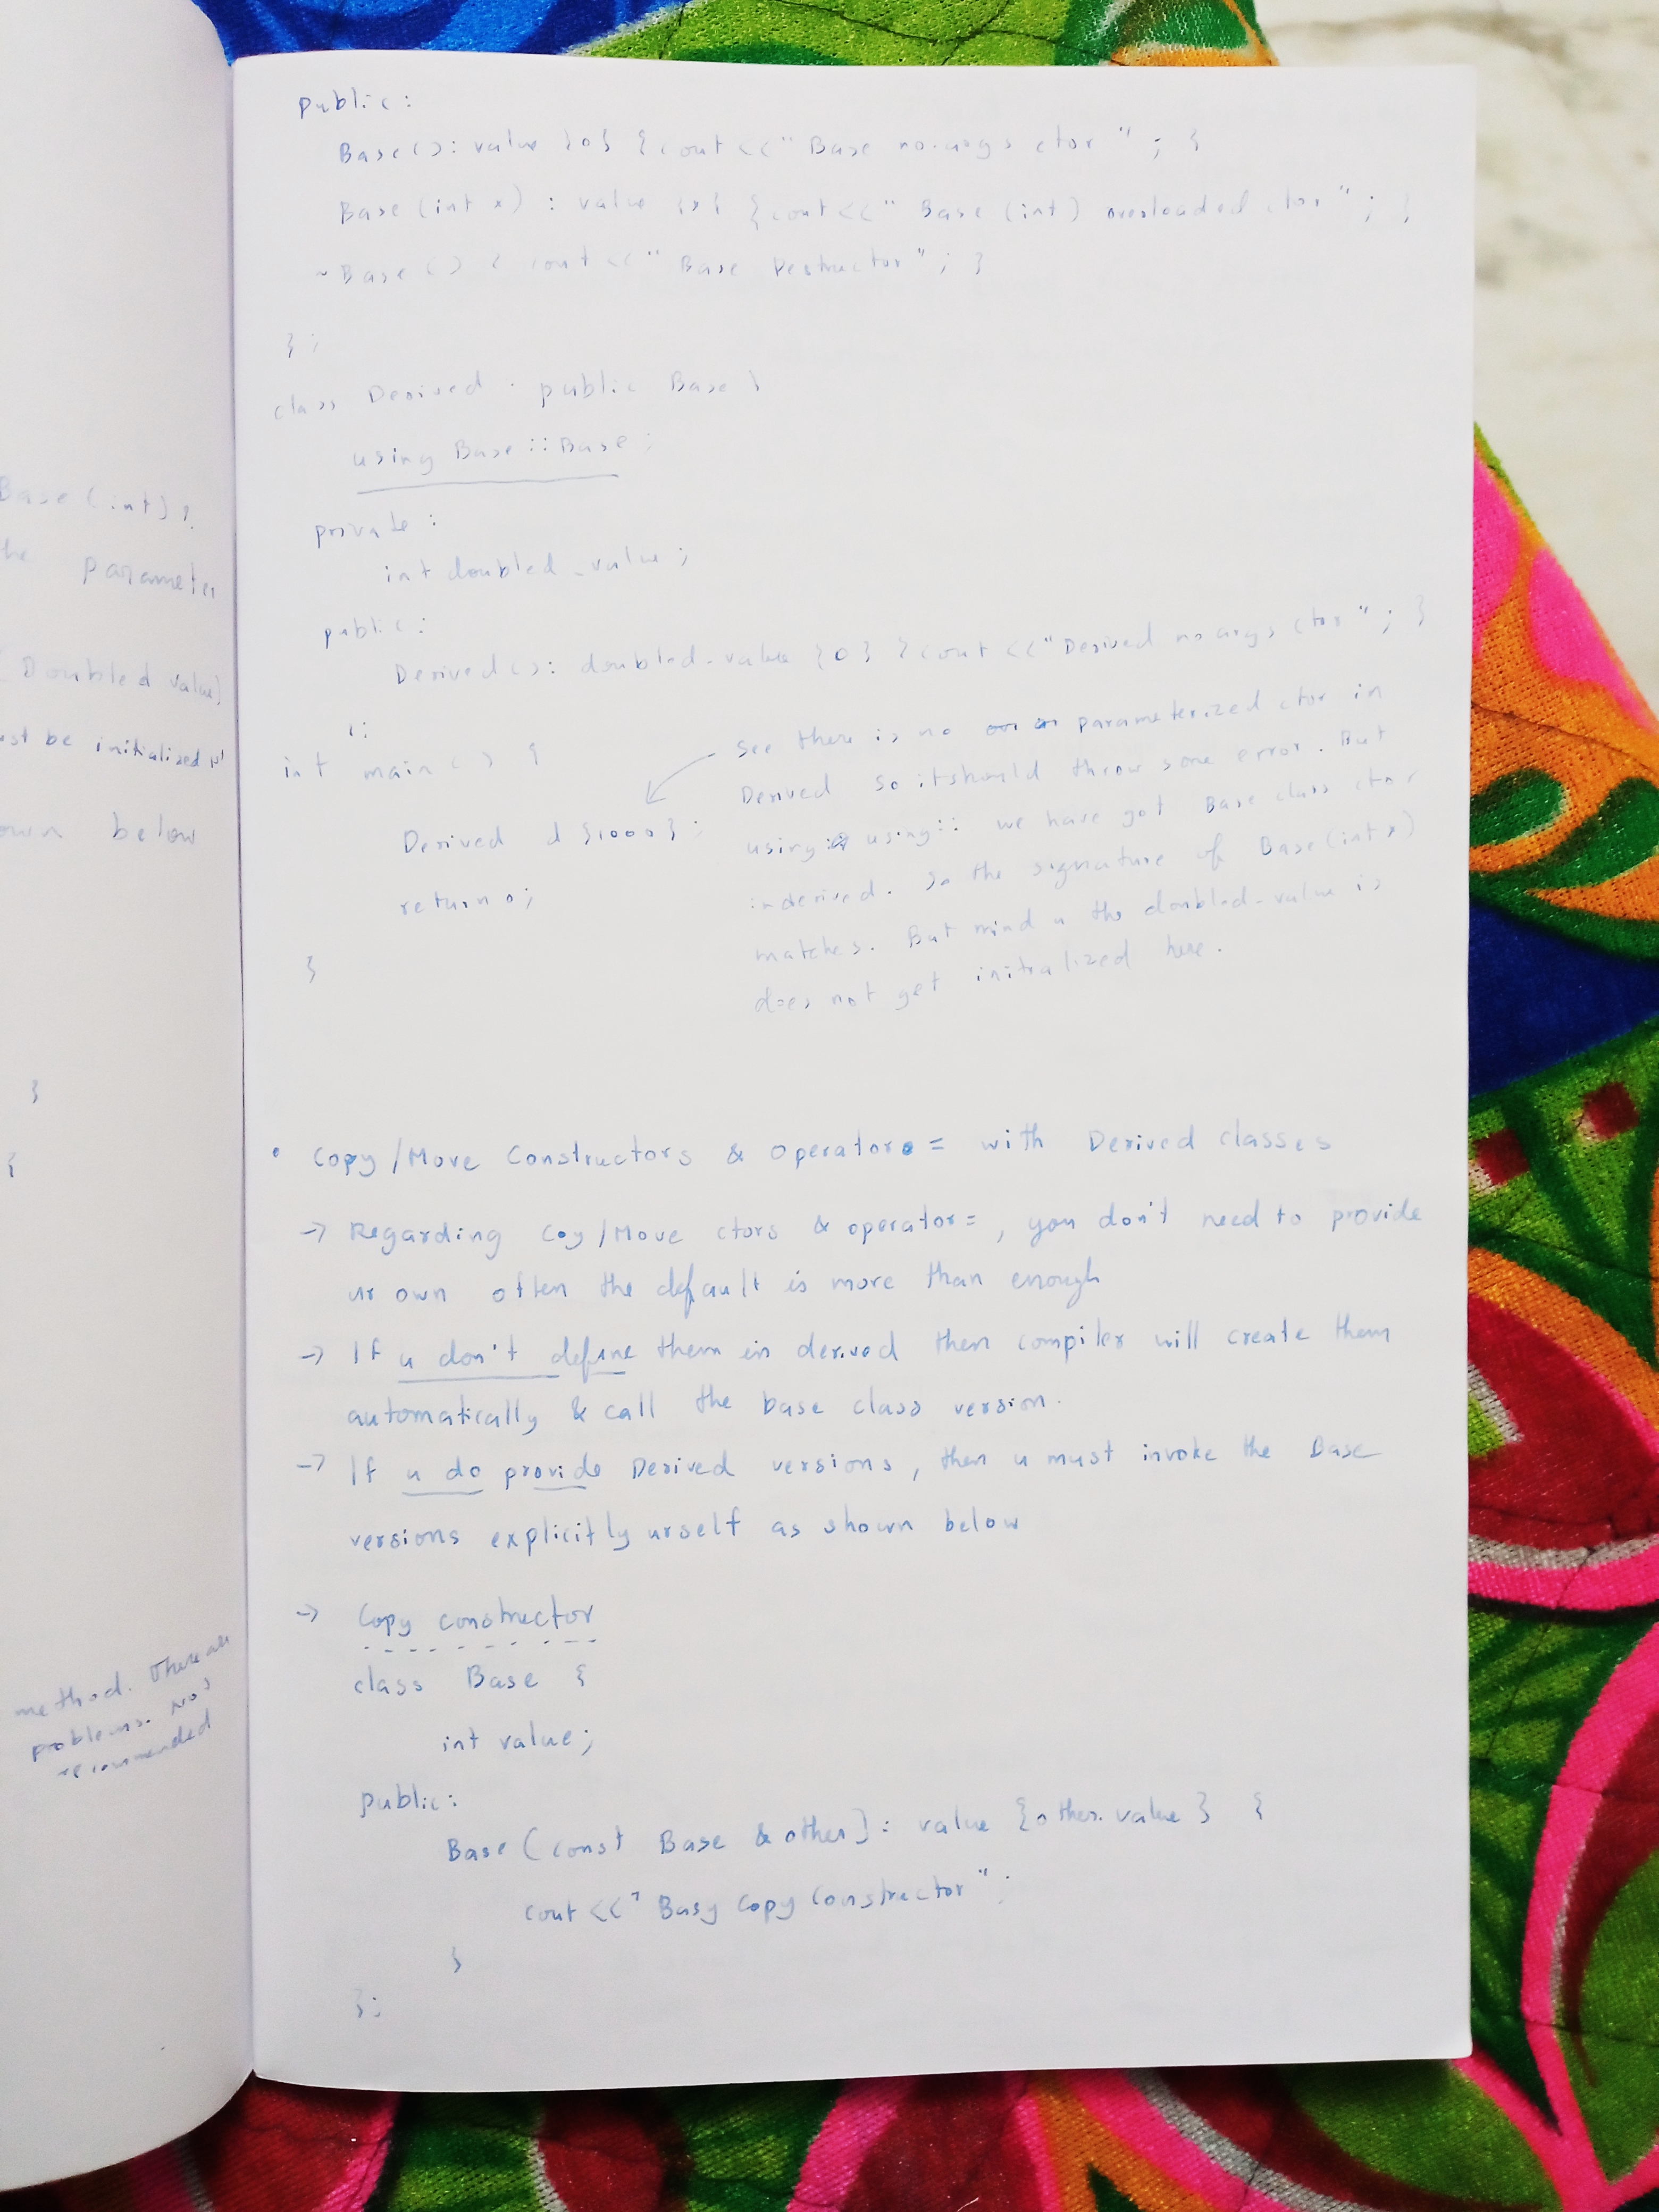 Base(int) ?.
the parameter
(Doubled value)
ust be initialized
own below
}
{
method. There are
problems. No
recommended
public:
Base(): value {0} {cout<<"Base no-args ctor"; }
Base(int x) : value {x} {cout<<"Base (int) overloaded ctor"; }
~Base() { cout<<"Base Destructor"; }
};
class Derived : public Base {
using Base::Base;
private:
int doubled_value;
public:
Derived(): doubled_value {0} {cout<<"Derived no args ctor"; }
};
int main() {
Derived d {1000};
return 0;
}
see there is no parameterized ctor in
Derived so it should throw some error. But
using using:: we have got Base class ctor
in derived. So the signature of Base(int x)
matches. But mind u the doubled_value is
does not get initialized here.
• Copy/Move Constructors & Operator= with Derived classes
→ Regarding Coy/Move ctors & operator=, you don't need to provide
ur own often the default is more than enough
→ If u don't define them in derived then compiler will create them
automatically & call the base class version.
→ If u do provide Derived versions, then u must invoke the Base
versions explicitly urself as shown below
→ Copy constructor
class Base {
int value;
public:
Base (const Base &other): value {other.value} {
cout<<"Basy Copy Constructor";
}
};